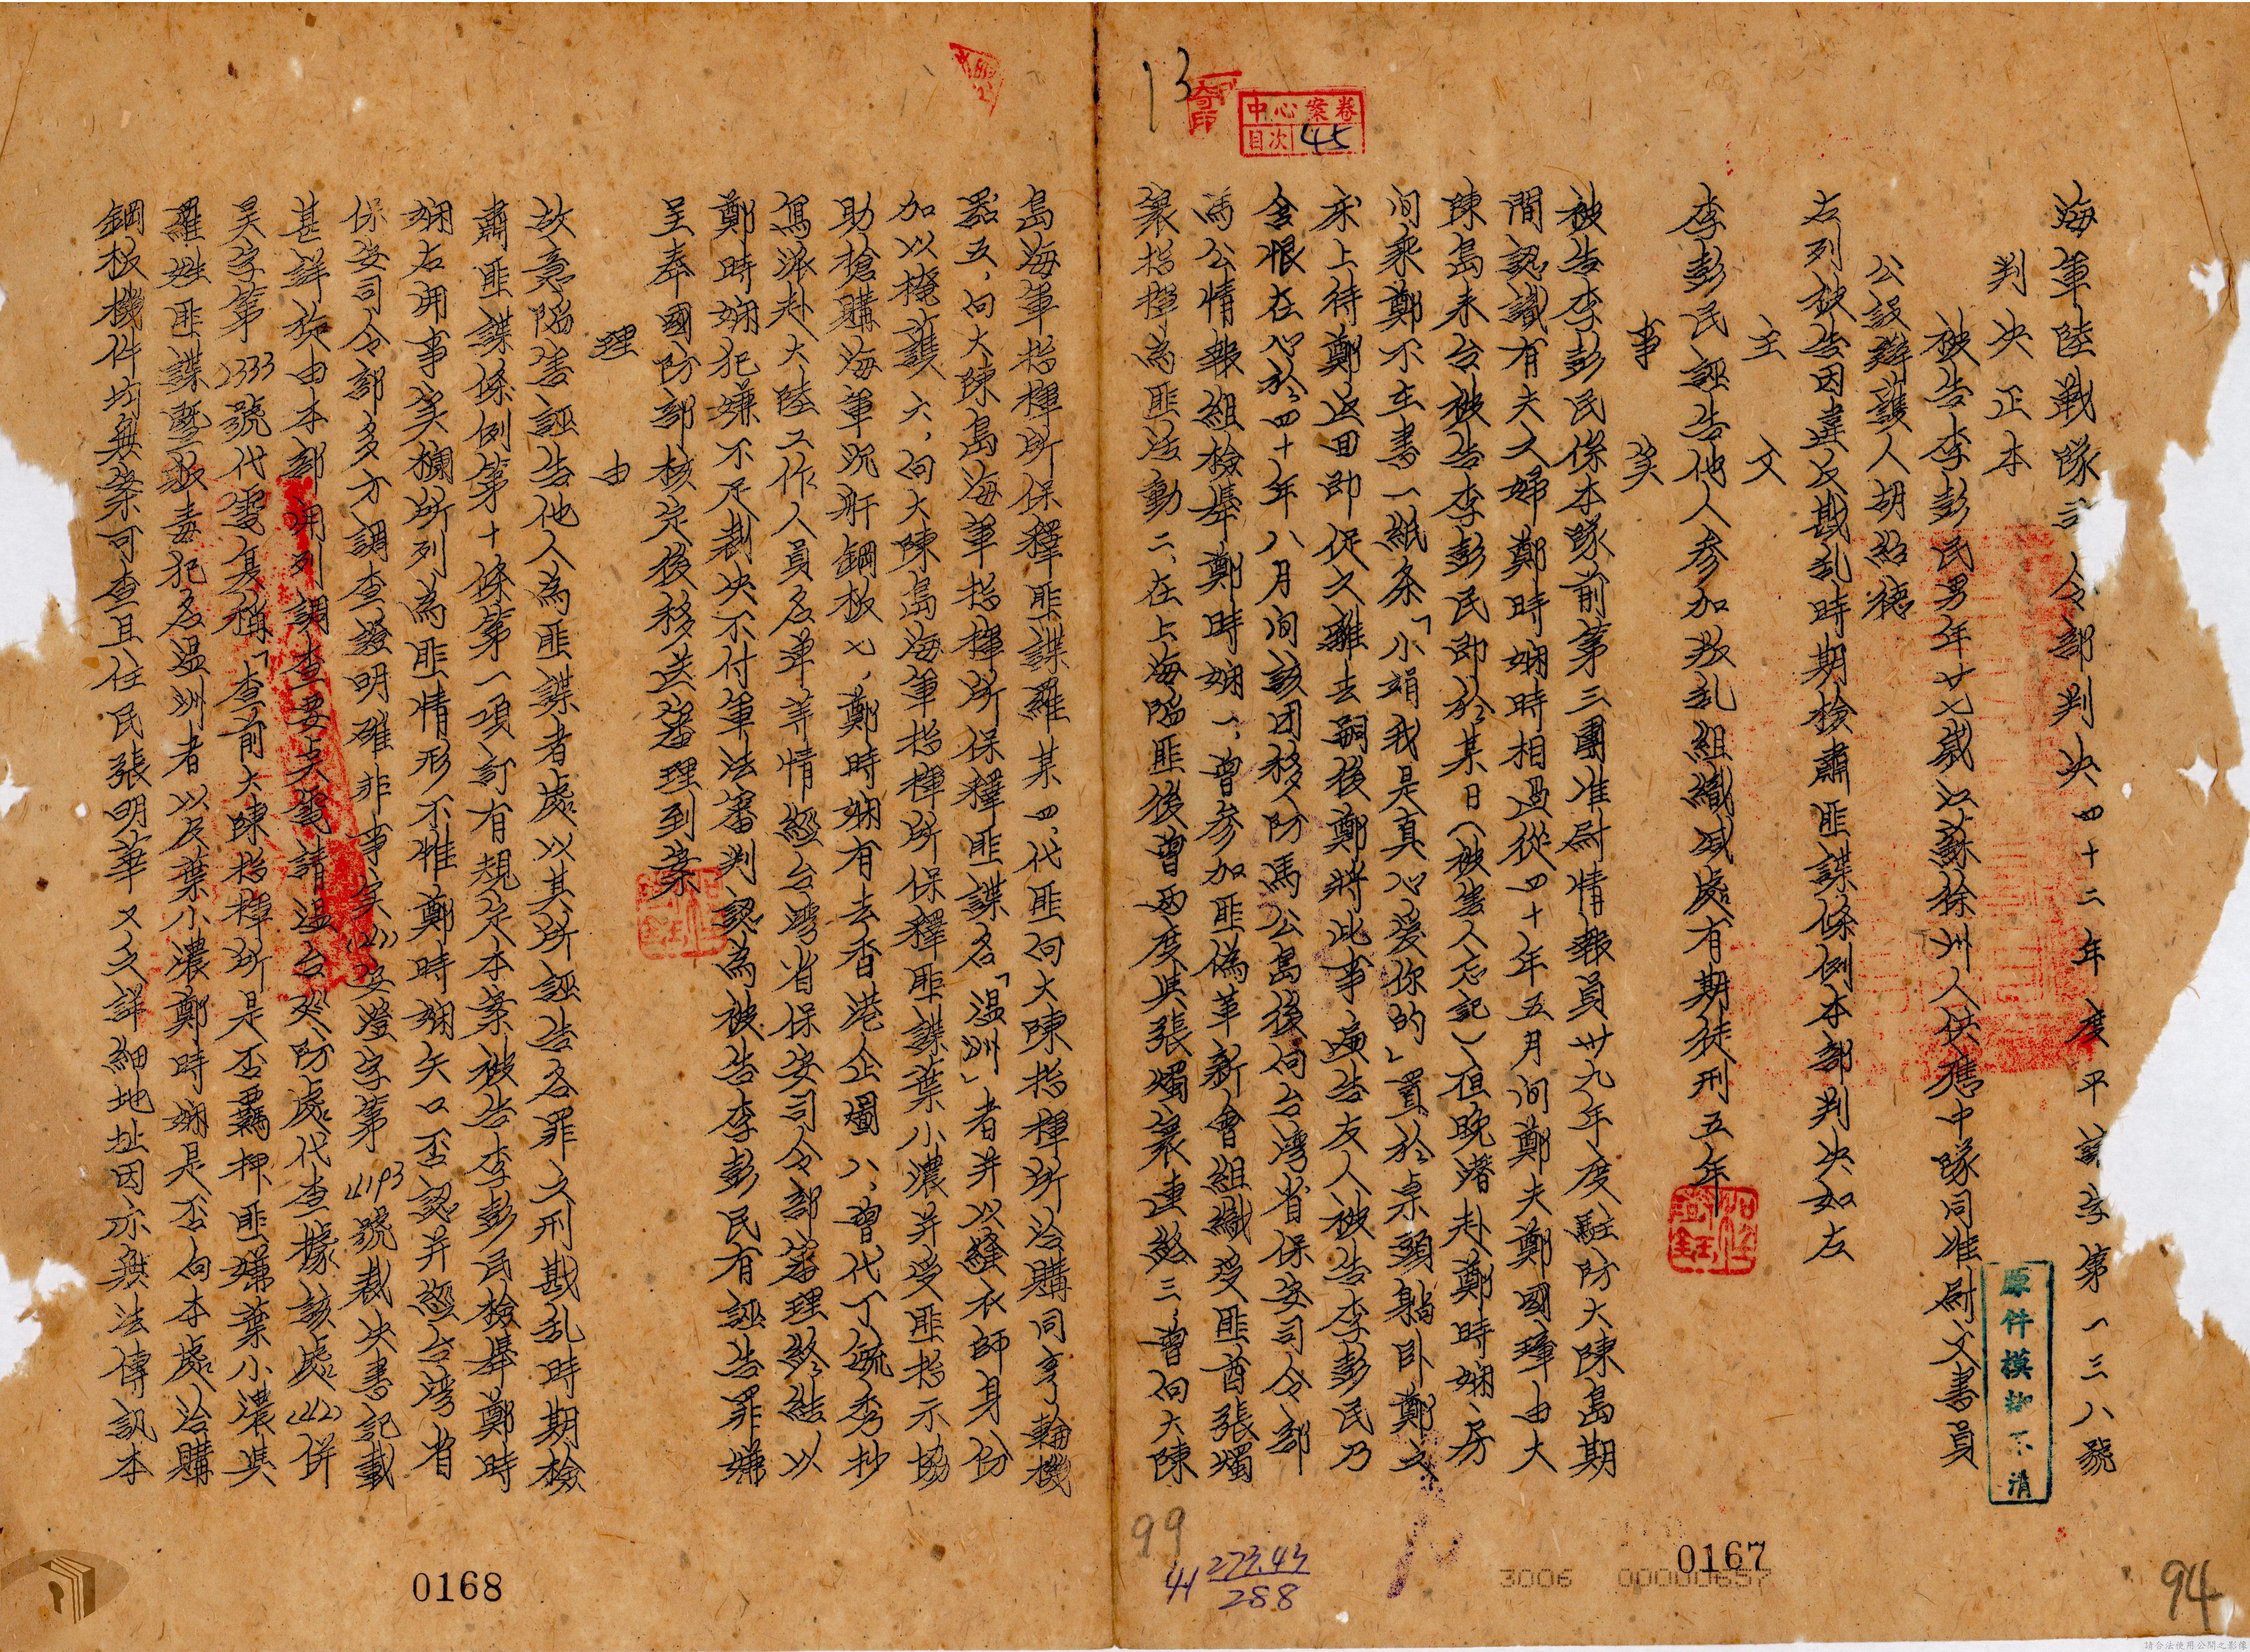 海軍陸戰隊司令部判決四十二年度平誅字第一三八號
判決正本
被告李彭民男年廿七歲江蘇徐州人供應中隊同准尉文書員
公設辯護人胡紹德
右列被告因違反戡乱時期檢肅匪諜條例本部判決如左
主文
李彭民誣告他人參加叛乱組織減處有期徒刑五年
事实
被告李彭民係本隊前第三團准尉情報員卅九年度駐防大陳島期
間認識有夫之婦鄭時娴時相過從四十年五月间鄭夫鄭國璋由大
陳島來台被告李彭民即於某日(被害人忘記)夜晚潛赴鄭時娴房
间乘鄭不在書一紙条「小娟我是真心愛你的」置於桌頭躺卧鄭之
床上待鄭返回即促之離去嗣後鄭將此事遍告友人被告李彭民乃
含恨在心於四十年八月间該团移防馬公島後向台灣省保安司令部
馬公情報組檢舉鄭時娴一、曾參加匪偽革新會組織受匪酋張燭
寰指揮為匪活動二、在上海陷匪後曾兩度與張燭寰連絡三、曾向大陳
島海軍指揮所保釋匪諜羅某四、代匪向大陳指揮所洽購同亨輪機
器五、向大陳島海軍指揮所保釋匪諜名「温洲」者并以縫衣師身份
加以掩護六、向大陳島海軍指揮所保釋匪諜葉小濃并受匪指示協
助搶購海軍沉舡鋼板七、鄭時娴有去香港企圖八、曾代丁毓秀抄
寫派赴大陸工作人員名单等情經台灣省保安司令部審理終結以
鄭時娴犯嫌不足裁決不付軍法審判認為被告李彭民有誣告罪嫌
呈奉國防部核定後移送審理到案
理由
故意陷害誣告他人為匪諜者處以其所誣告各罪之刑戡乱時期檢
肅匪諜條例第十條第一項訂有規定本案被告李彭民檢舉鄭時
娴右开事实欄所列為匪情形不惟鄭時娴矢口否認并經台灣省
保安司令部多方調查證明確非事实(41)安澄字第4193號裁決書記載
甚詳旋由本部開列調查要点電請温台巡防處代查據該處(42)併
昊字第2333號代電复稱「查前大陳指揮所是否羈押匪嫌葉小濃與
羅姓匪諜暨販毒犯名温洲者以及葉小濃鄭時娴是否向本處洽購
鋼板機件均無案可查且住民張明華又乏詳細地址因亦無法傳訊本
13
中心案卷
目次45
原件模糊不清
99
41 273.43
288
3006 00000657
0167
94
0168
請合法使用公開之影像